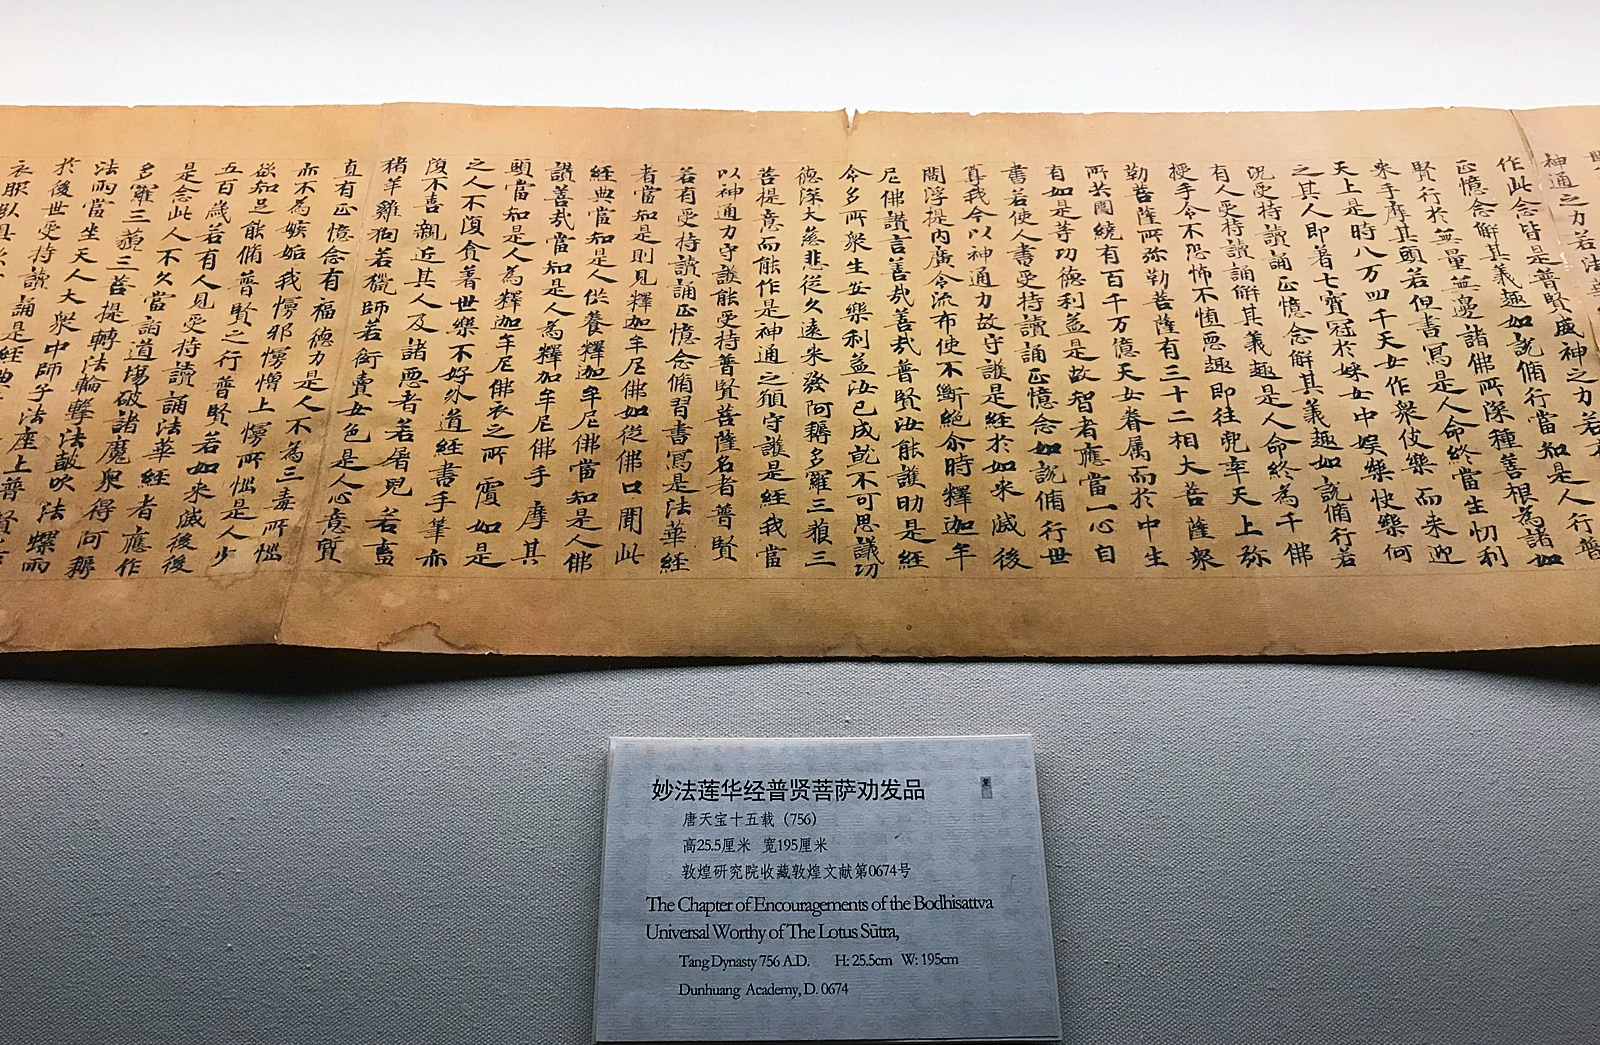 神通之力若法華
作此念皆是普賢威神之力若有
正憶念解其義趣如說脩行當知是人行普
賢行於無量無邊諸佛所深種善根為諸如
来手摩其頭若但書寫是人命終當生忉利
天上是時八万四千天女作衆伎樂而来迎
之其人即著七寶冠於婇女中娛樂快樂何
況受持讀誦正憶念解其義趣如說脩行若
有人受持讀誦解其義趣是人命終為千佛
授手令不恐怖不墮惡趣即往兜率天上弥
勒菩薩所弥勒菩薩有三十二相大菩薩衆
所共圍繞有百千万億天女眷属而於中生
有如是等功德利益是故智者應當一心自
書若使人書受持讀誦正憶念如說脩行世
尊我今以神通力故守護是經於如来滅後
閻浮提内廣令流布使不斷絶尒時釋迦牟
尼佛讚言善哉善哉普賢汝能護助是經
令多所衆生安樂利益汝已成就不可思議功
德深大慈悲從久遠来發阿耨多羅三藐三
菩提意而能作是神通之願守護是經我當
以神通力守護能受持普賢菩薩名者普賢
若有受持讀誦正憶念脩習書寫是法華經
者當知是則見釋迦牟尼佛如從佛口聞此
經典當知是人供養釋迦牟尼佛當知是人佛
讚善哉當知是人為釋迦牟尼佛手摩其
頭當知是人為釋迦牟尼佛衣之所覆如是
之人不復貪著世樂不好外道經書手筆亦
復不喜親近其人及諸惡者若屠兒若畜
猪羊雞狗若獵師若衒賣女色是人心意質
直有正憶念有福德力是人不為三毒所惱
亦不為嫉妬我慢邪慢增上慢所惱是人少
欲知足能脩普賢之行普賢若如来滅後後
五百歳若有人見受持讀誦法華經者應作
是念此人不久當詣道場破諸魔衆得阿耨
多羅三藐三菩提轉法輪擊法鼓吹法螺雨
法雨當坐天人大衆中師子法座上普賢若
於後世受持讀誦是經典
衣服臥具
妙法莲华经普贤菩萨劝发品
唐天宝十五载（756）
高25.5厘米 宽195厘米
敦煌研究院收藏敦煌文献第0674号
The Chapter of Encouragements of the Bodhisattva
Universal Worthy of The Lotus Sūtra,
Tang Dynasty 756 A.D. H: 25.5cm W: 195cm
Dunhuang Academy, D. 0674